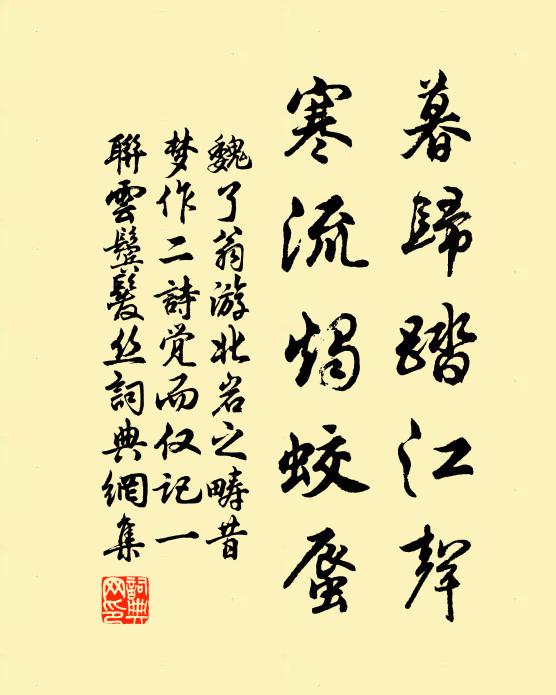 暮歸踏江聲
寒流燭蛟蜃
魏了翁游北岩之疇昔
梦作二詩觉而仅記一
聯雲鬢髮丝詞典網集
詞典网印